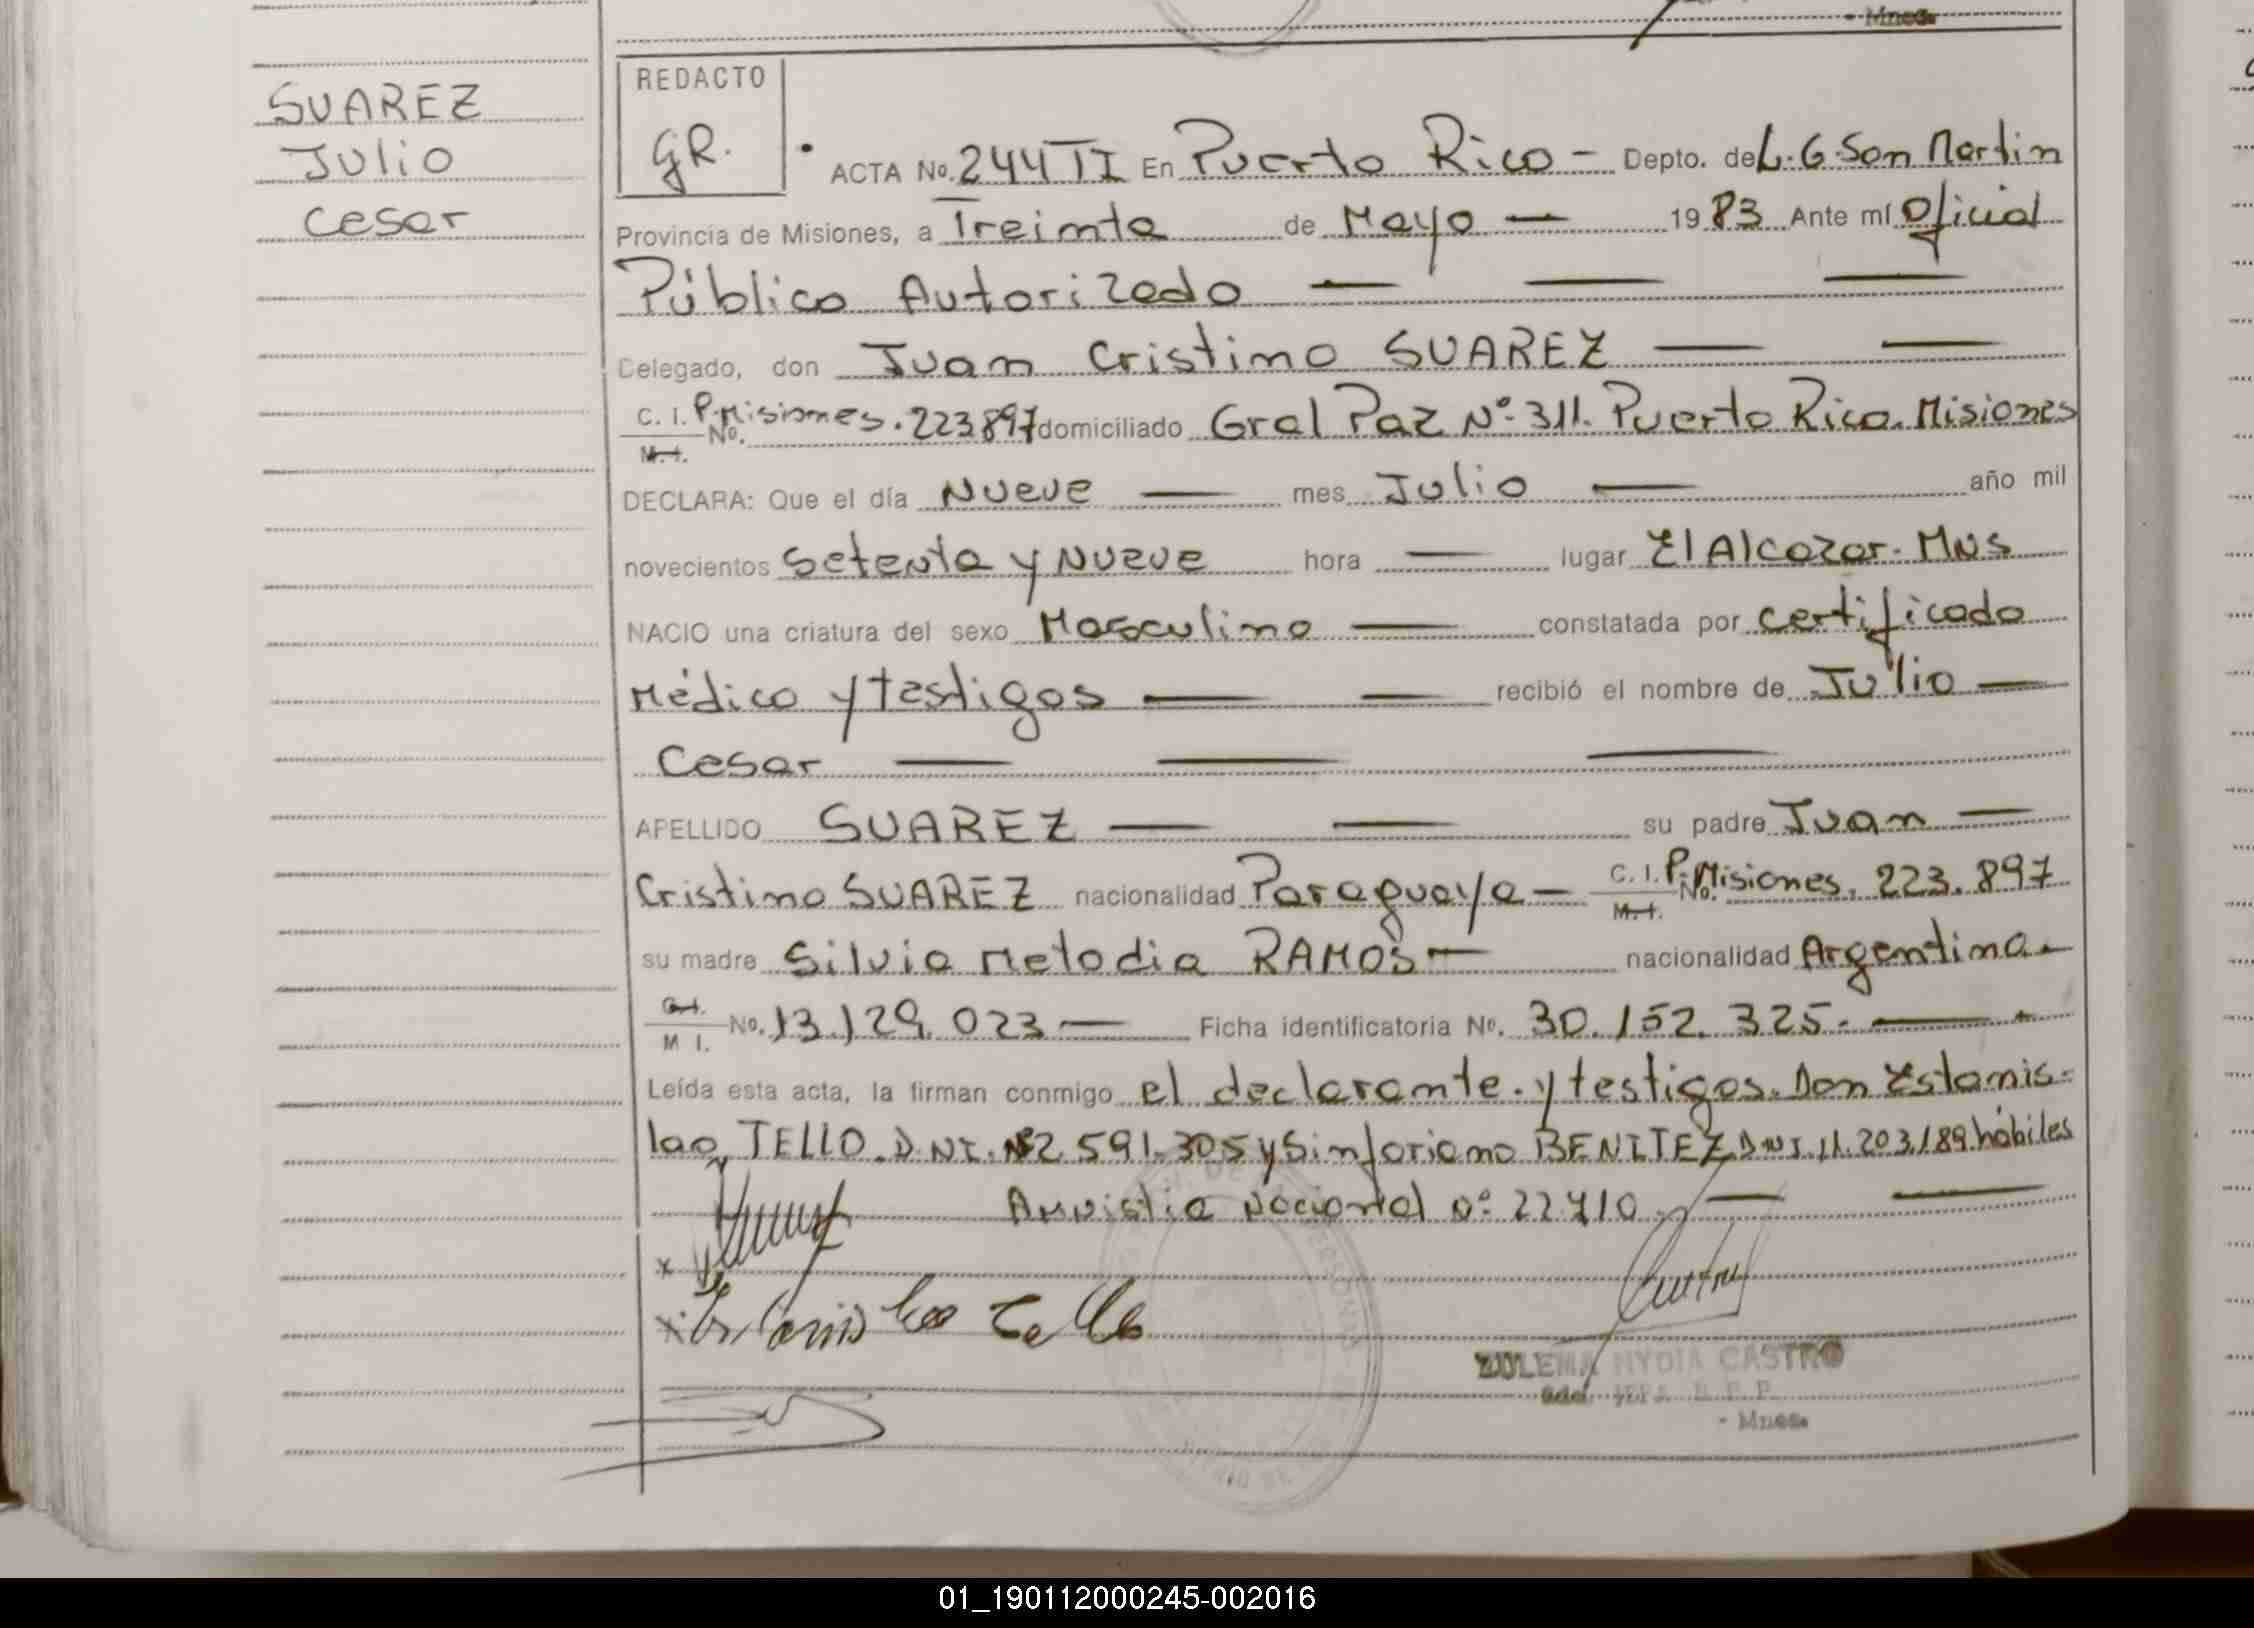 - Mnes.
SUAREZ
Julio
Cesar
REDACTO
GR.
ACTA No. 244 TI En Puerto Rico - Depto. de L. G. San Martin
Provincia de Misiones, a Treinta de Mayo — 1983 Ante mí Oficial
Público Autorizado — — —
Delegado, don Juan Cristino SUAREZ — —
C. I. P. Misiones. 223.897 domiciliado Gral Paz Nº 311. Puerto Rico. Misiones
M. I. No.
DECLARA: Que el día Nueve — mes Julio — año mil
novecientos Setenta y Nueve hora — lugar El Alcazar. Mns
NACIO una criatura del sexo Masculino — constatada por certificado
Médico y testigos — — recibió el nombre de Julio —
Cesar — — —
APELLIDO SUAREZ — — su padre Juan —
Cristino SUAREZ nacionalidad Paraguaya — C. I. P. Misiones. 223.897
M. I. No.
su madre Silvia Melodia RAMOS — nacionalidad Argentina.
C. I. M I. No. 13.129.023 — Ficha identificatoria No. 30.152.325. —
Leída esta acta, la firman conmigo el declarante. y testigos. Don Estanis-
lao TELLO. D.NI. Nº 2.591.305 y Sinforiano BENITEZ DNI. 11.203.189. hábiles
Amnistia Nacional nº 22410 — —
x
x Estanislao Tello
ZULEMA NYDIA CASTRO
- Mnes.
01_190112000245-002016